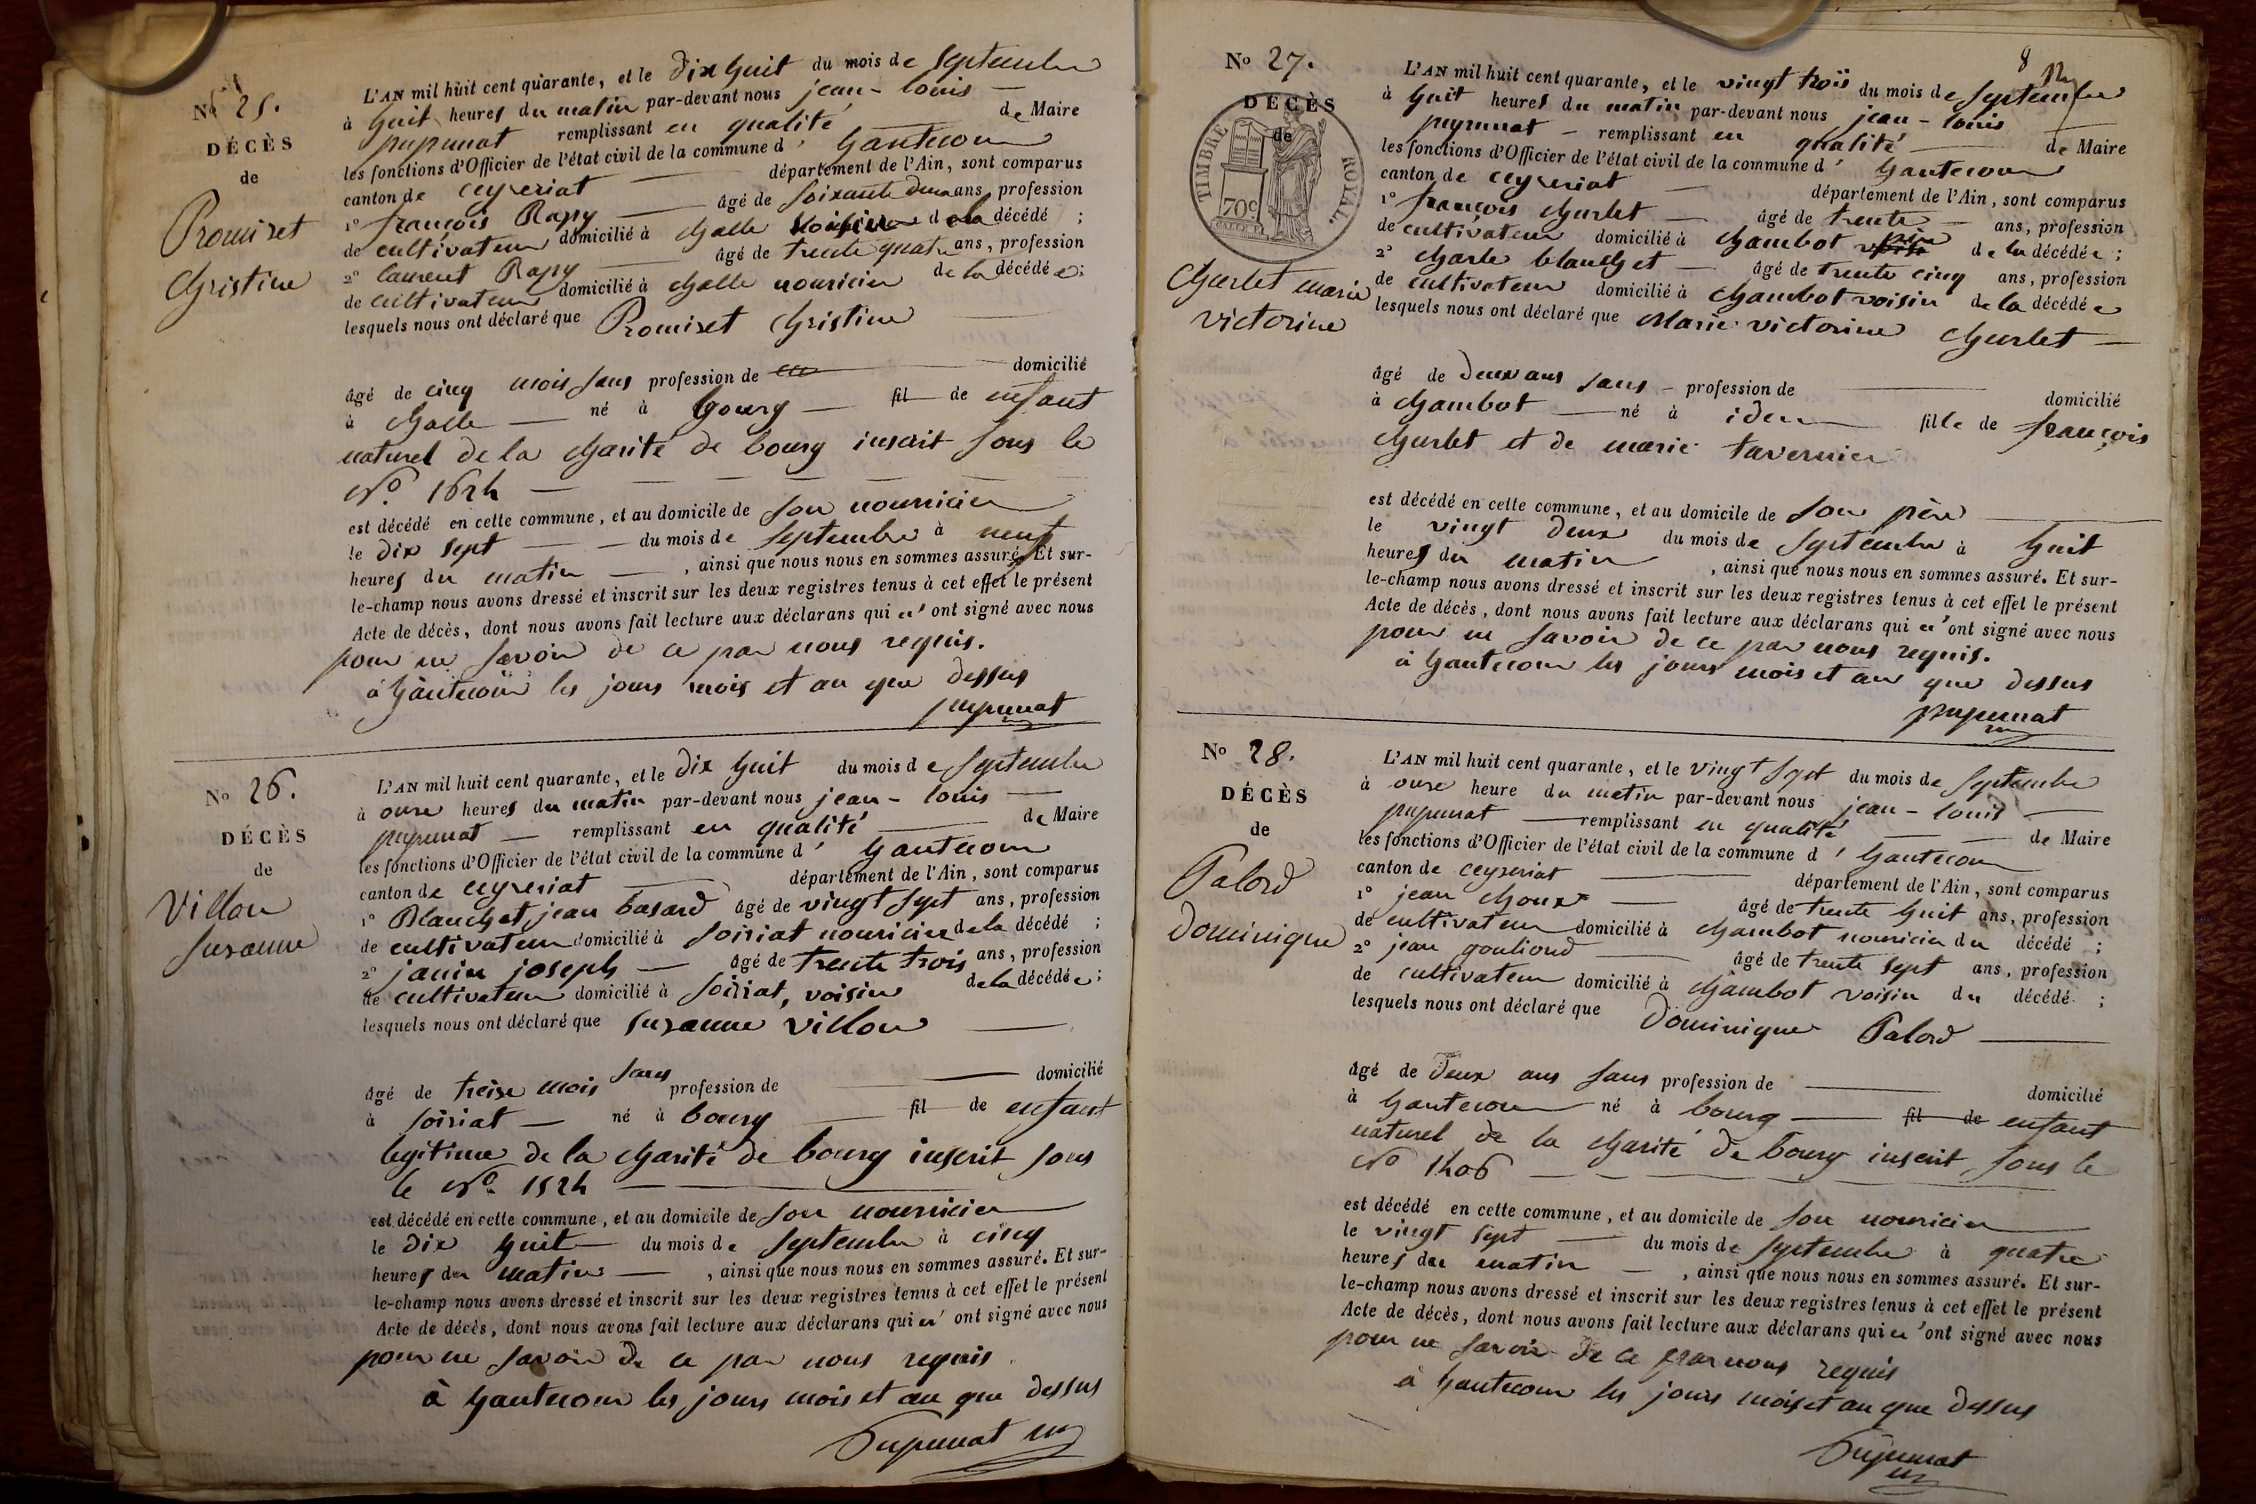 No 25.
DÉCÈS
de
Promiset
Christine
L'AN mil huit cent quarante, et le dix huit du mois de septembre
à huit heures du matin par-devant nous jean-louis
pupunat remplissant en qualité de Maire
les fonctions d'Officier de l'état civil de la commune d' hautecour
canton de ceyzeriat département de l'Ain, sont comparus
1º françois Rapy âgé de soixante deux ans, profession
de cultivateur domicilié à Challe de la décédé ;
2º laurent Rapy âgé de trente quatre ans, profession
de cultivateur domicilié à challe nouricier de la décédée;
lesquels nous ont déclaré que Promiset christine
âgé de cinq mois sans profession de domicilié
à Challe né à bourg fil de enfant
naturel de la charité de bourg inscrit sous le
No 1624
est décédé en cette commune, et au domicile de son nourricier
le dix sept du mois de septembre à neuf
heures du matin , ainsi que nous nous en sommes assuré. Et sur-
le-champ nous avons dressé et inscrit sur les deux registres tenus à cet effet le présent
Acte de décès, dont nous avons fait lecture aux déclarans qui n'ont signé avec nous
pour ne savoir de ce par nous requis.
à hautecour les jours mois et an que dessus
pupunat
No 26.
DÉCÈS
de
Villon
suzanne
L'AN mil huit cent quarante, et le dix huit du mois de septembre
à onze heures du matin par-devant nous jean-louis
pupunat remplissant en qualité de Maire
les fonctions d'Officier de l'état civil de la commune d' hautecour
canton de ceyzeriat département de l'Ain, sont comparus
1º Blanchet jean basard âgé de vingt sept ans, profession
de cultivateur domicilié à soiriat nouricier de la décédé ;
2º janin joseph âgé de trente trois ans, profession
de cultivateur domicilié à soiriat, voisin de la décédée;
lesquels nous ont déclaré que suzanne villon
âgé de treize mois sans profession de domicilié
à soiriat né à bourg fil de enfant
legitime de la charité de bourg inscrit sous
le No 1524
est décédé en cette commune, et au domicile de son nourricier
le dix huit du mois de septembre à cinq
heures du matin , ainsi que nous nous en sommes assuré. Et sur-
le-champ nous avons dressé et inscrit sur les deux registres tenus à cet effet le présent
Acte de décès, dont nous avons fait lecture aux déclarans qui n'ont signé avec nous
pour ne savoir de ce par nous requis
à hautecour les jours mois et an que dessus
Pupunat
8
No 27.
DÉCÈS
de
TIMBRE ROYAL.
70c
Churlet marie
victorine
L'AN mil huit cent quarante, et le vingt trois du mois de septembre
à huit heures du matin par-devant nous jean-louis
pupunat remplissant en qualité de Maire
les fonctions d'Officier de l'état civil de la commune d' hautecour
canton de ceyzeriat département de l'Ain, sont comparus
1º françois churlet âgé de trente ans, profession
de cultivateur domicilié à chambot père de la décédée ;
2º charle blanchet âgé de trente cinq ans, profession
de cultivateur domicilié à chambot voisin de la décédée
lesquels nous ont déclaré que Marie victorine churlet
âgé de deux ans sans profession de domicilié
à chambot né à idem fille de françois
churlet et de marie tavernier
est décédé en cette commune, et au domicile de son père
le vingt deux du mois de septembre à huit
heures du matin , ainsi que nous nous en sommes assuré. Et sur-
le-champ nous avons dressé et inscrit sur les deux registres tenus à cet effet le présent
Acte de décès, dont nous avons fait lecture aux déclarans qui n'ont signé avec nous
pour ne savoir de ce par nous requis.
à hautecour les jours mois et an que dessus
pupunat
No 28.
DÉCÈS
de
Palord
Dominique
L'AN mil huit cent quarante, et le vingt sept du mois de septembre
à onze heure du matin par-devant nous jean-louis
pupunat remplissant en qualité de Maire
les fonctions d'Officier de l'état civil de la commune d' hautecour
canton de ceyzeriat département de l'Ain, sont comparus
1º jean choux âgé de trente huit ans, profession
de cultivateur domicilié à chambot nouricier du décédé ;
2º jean gouliond âgé de trente sept ans, profession
de cultivateur domicilié à chambot voisin du décédé ;
lesquels nous ont déclaré que Dominique Palord
âgé de deux ans sans profession de domicilié
à hautecour né à bourg fil de enfant
naturel de la charité de bourg inscrit sous le
No 1406
est décédé en cette commune, et au domicile de son nouricier
le vingt sept du mois de septembre à quatre
heures du matin , ainsi que nous nous en sommes assuré. Et sur-
le-champ nous avons dressé et inscrit sur les deux registres tenus à cet effet le présent
Acte de décès, dont nous avons fait lecture aux déclarans qui n'ont signé avec nous
pour ne savoir de ce par nous requis
à hautecour les jours mois et an que dessus
Pupunat